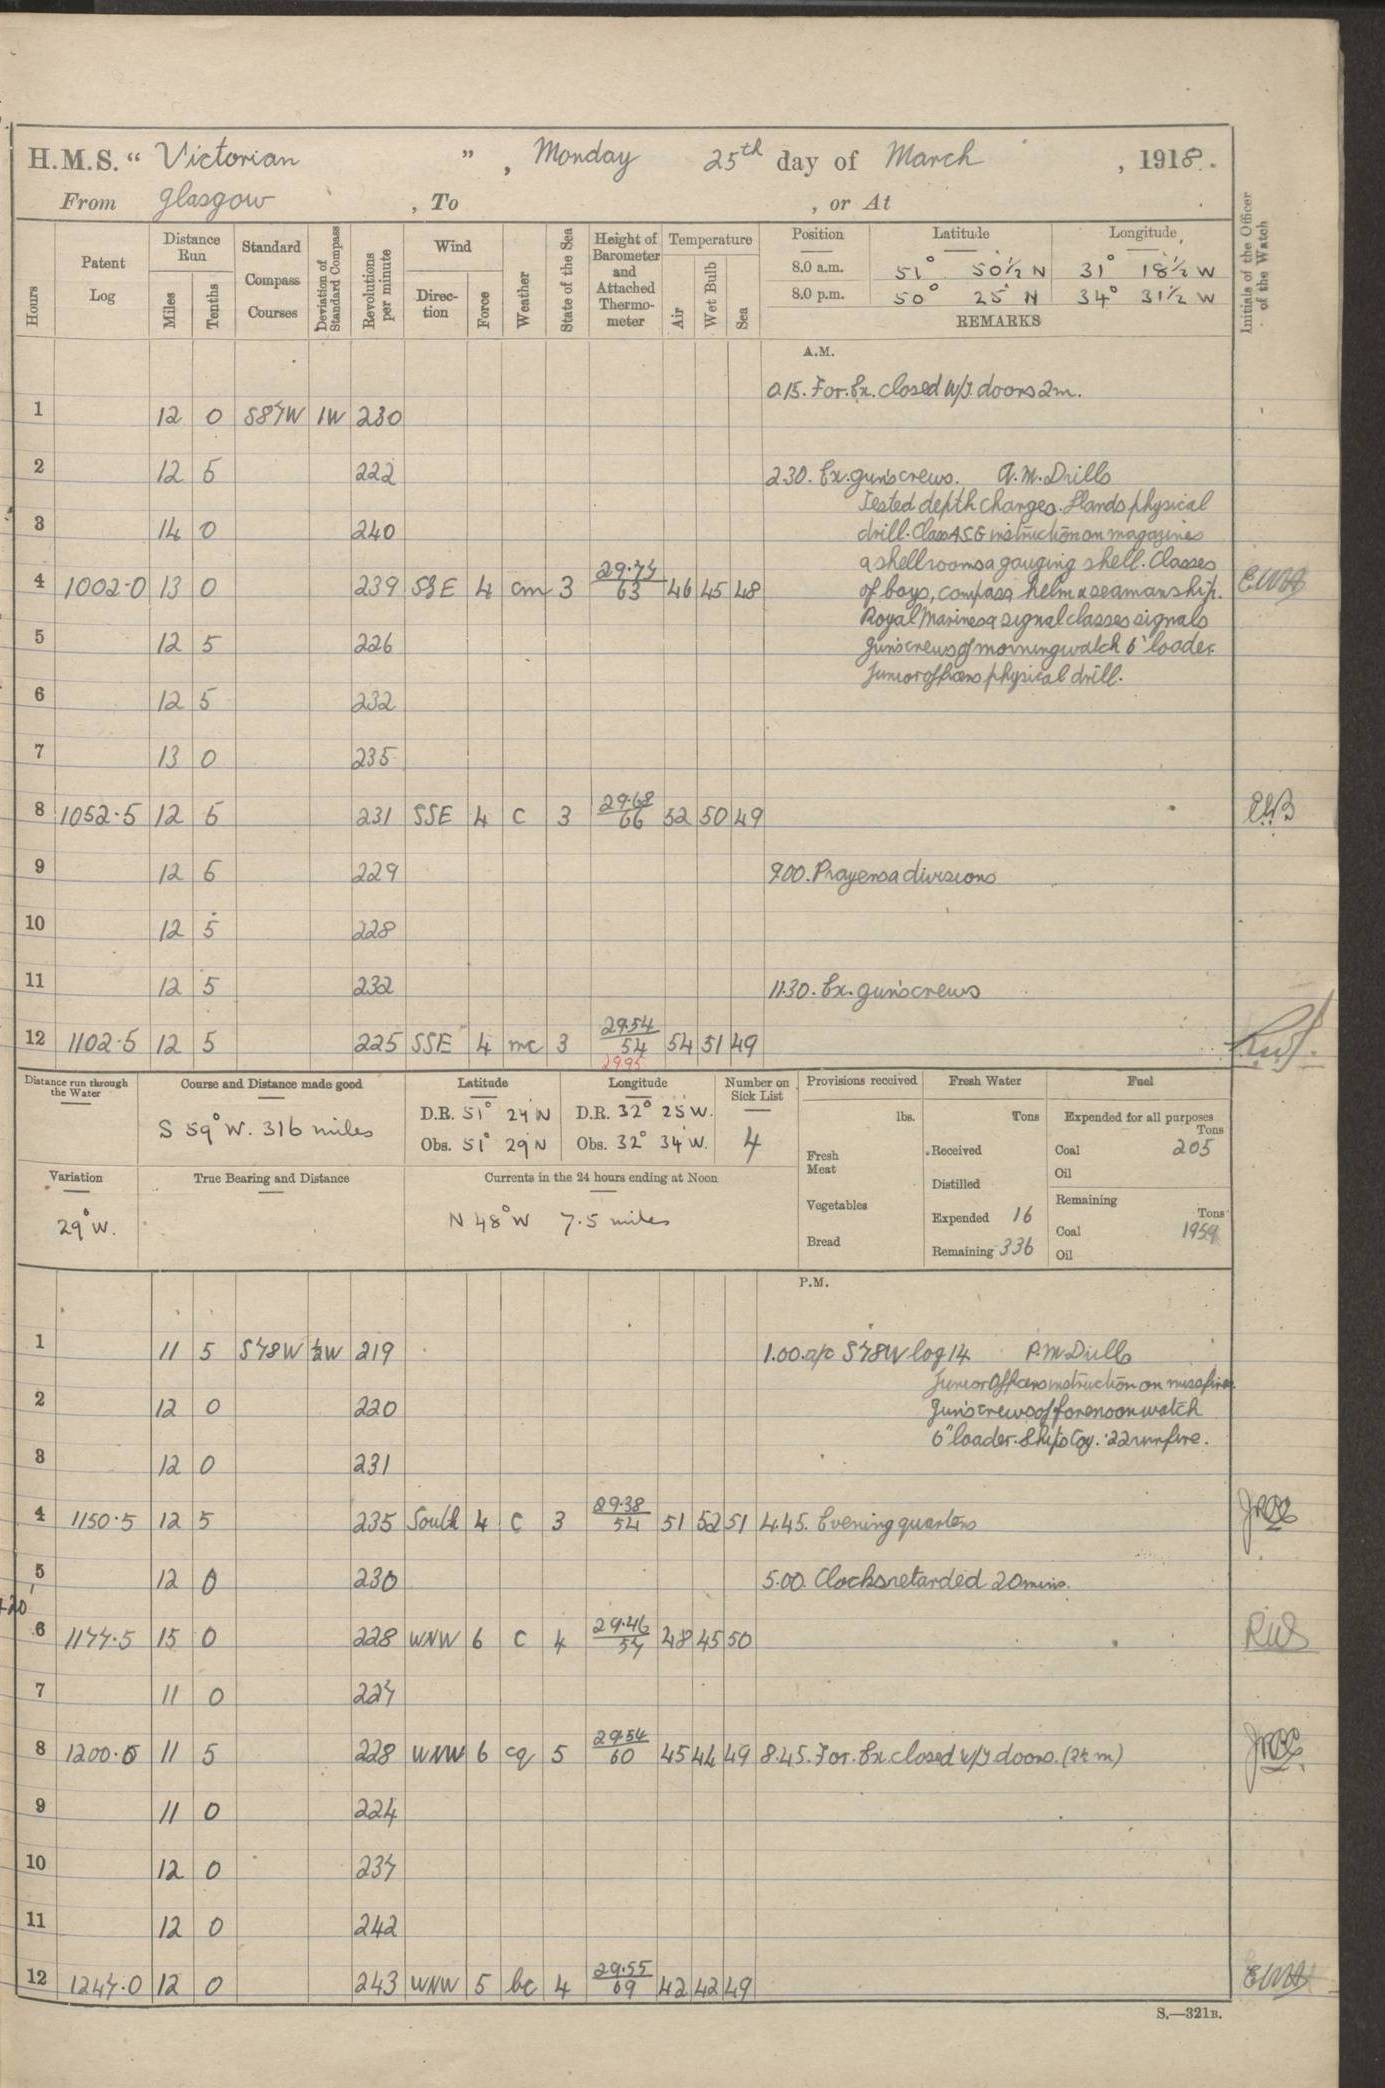 H.M.S. “ Victorian ” , Monday 25th day of March , 1918.
From Glasgow , To , or At
Hours
Patent Log
Distance Run
Miles
Tenths
Standard Compass Courses
Deviation of Standard Compass
Revolutions per minute
Wind
Direction
Force
Weather
State of the Sea
Height of Barometer and Attached Thermometer
Temperature
Air
Wet Bulb
Sea
Position Latitude Longitude
8.0 a.m. 51° 50½ N 31° 18½ W
8.0 p.m. 50° 25' N 34° 31½ W
REMARKS
Initials of the Officer of the Watch
A.M.
0.15. For. Ex. closed W/T doors 2m.
1 12 0 S87W 1W 230
2 12 5 222 2.30. Ex. gun's crews. A.M. Drills
Tested depth charges. Hands physical
3 14 0 240 drill. Class ASG instruction on magazines
& shellrooms & gauging shell. Classes
4 1002.0 13 0 239 SSE 4 cm 3 29.77/63 46 45 48 of boys, compass helm & seamanship.
Royal Marines & signal classes signals
5 12 5 226 gun's crews of morning watch 6" loader.
Junior officers physical drill.
6 12 5 232
7 13 0 235
8 1052.5 12 5 231 SSE 4 c 3 29.68/66 52 50 49
9 12 5 229 9.00. Prayers & divisions
10 12 5 228
11 12 5 232 11.30. Ex. gun's crews
12 1102.5 12 5 225 SSE 4 mc 3 29.54/54 54 51 49
29.95
Distance run through the Water
Course and Distance made good
S 59° W. 316 miles
Latitude
D.R. 51° 24' N
Obs. 51° 29' N
Longitude
D.R. 32° 25' W.
Obs. 32° 34' W.
Number on Sick List
4
Provisions received
lbs.
Fresh Meat
Vegetables
Bread
Fresh Water
Tons
Received
Distilled
Expended 16
Remaining 336
Fuel
Expended for all purposes
Tons
Coal 205
Oil
Remaining
Tons
Coal 1959
Oil
Variation
29° W.
True Bearing and Distance
Currents in the 24 hours ending at Noon
N 48° W 7.5 miles
P.M.
1 11 5 S78W ½W 219 1.00. a/c S78W log 14 P.M. Drills
Junior Officers instruction on missfires
2 12 0 220 Gun's crews of forenoon watch
6" loader. Ships Coy. .22 run fire.
3 12 0 231
4 1150.5 12 5 235 South 4 c 3 29.38/54 51 52 51 4.45. Evening quarters
5 12 0 230 5.00. Clocks retarded 20 mins.
+20'
6 1177.5 15 0 228 WNW 6 c 4 29.46/57 48 45 50 RWS
7 11 0 227
8 1200.5 11 5 228 WNW 6 cq 5 29.54/60 45 44 49 8.45. For. Ex. closed W/T doors. (2½ m)
9 11 0 224
10 12 0 237
11 12 0 242
12 1247.0 12 0 243 WNW 5 bc 4 29.55/69 42 42 49
S.—321B.